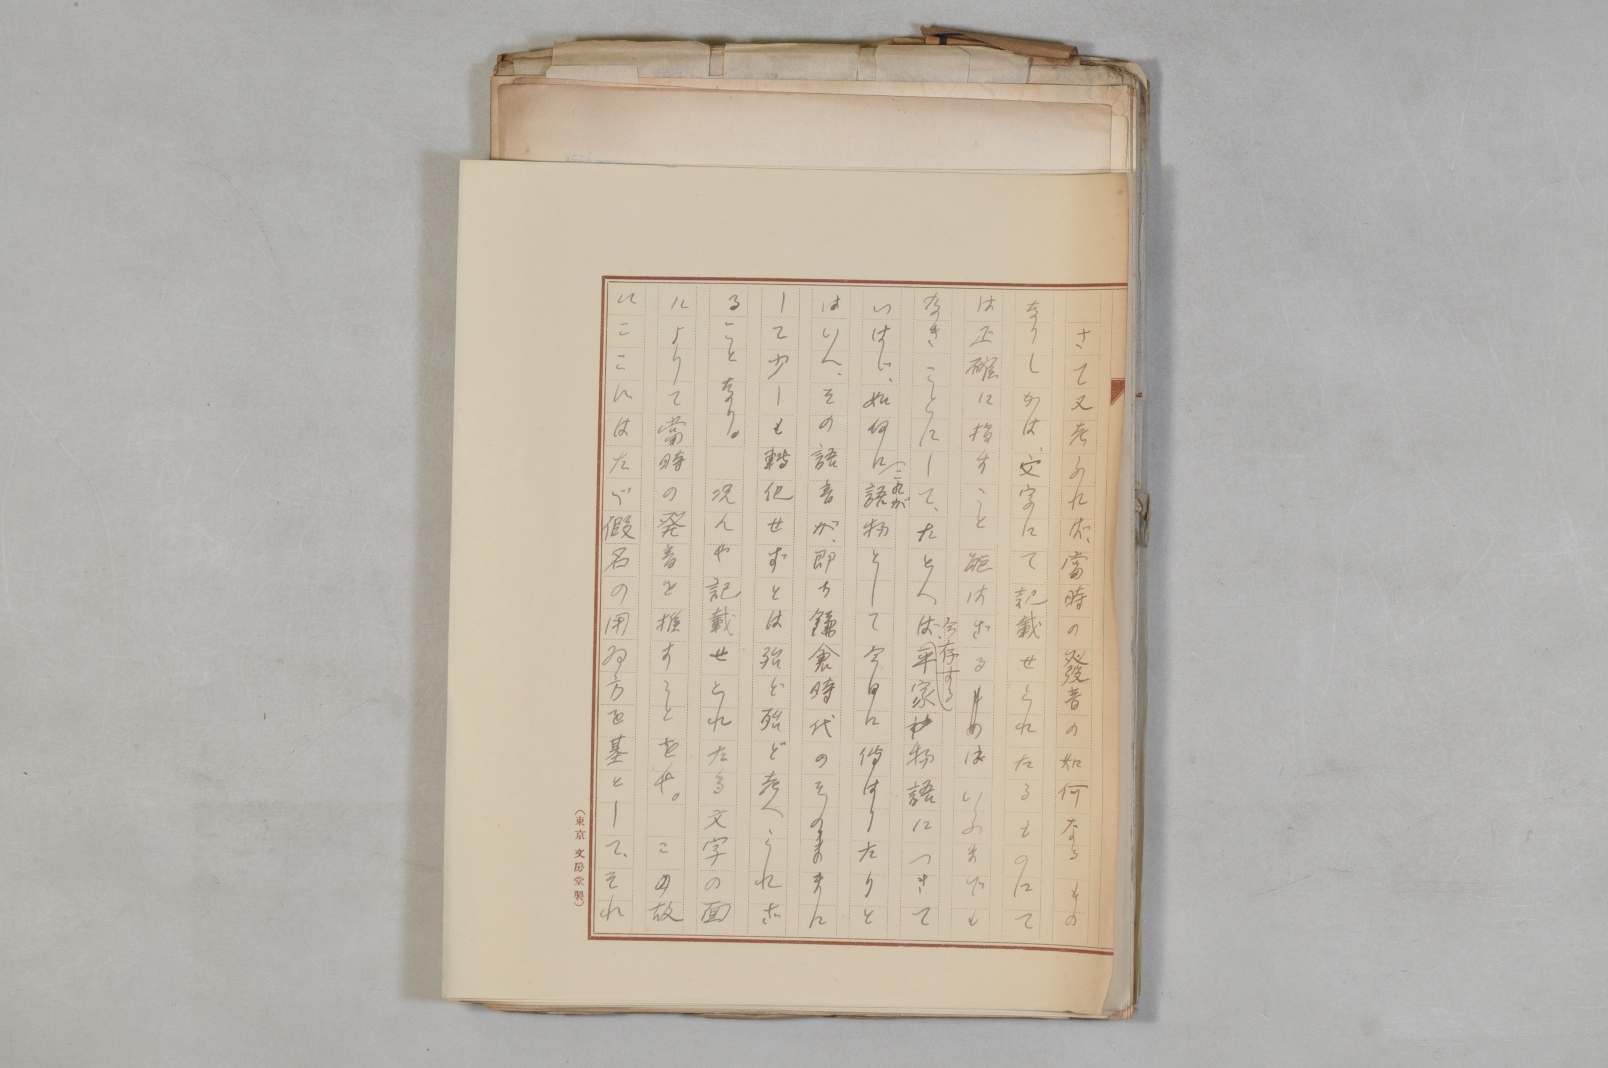 さて又考ふれば、當時の發音の如何なるもの
なりしかは、文字にて記載せられたるものにて
は正確に指すこと能はざるはいふまでも
なきことにして、たとへば、今存する平家物語につきて
いはば、如何に(これが語物として今日に傳はりたりと
はいへ、その語音が、即ち鎌倉時代のそのままに
して少しも轉化せずとは殆ど殆ど考へられざ
ることなり。況んや記載せられたる文字の面
によりて當時の発音を推すことをや。この故
にここにはたゞ假名の用ゐ方を基として、それ
(東京 文房堂製)